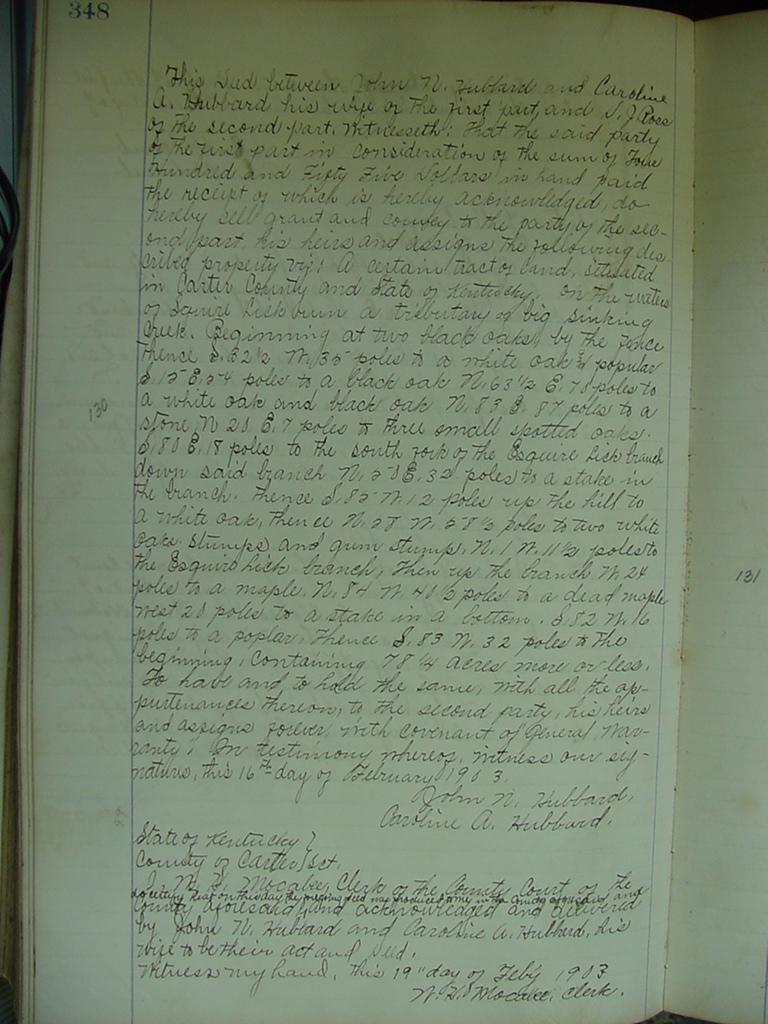 348
This Deed between John N. Hubbard and Caroline
A. Hubbard his wife of the first part, and S. J. Ross
of the second part. Witnesseth: That the said party
of the first part in consideration of the sum of Four
Hundred and Fifty Five Dollars in hand paid
the receipt of which is hereby acknowledged, do
hereby sell grant and convey to the party of the sec-
ond part his heirs and assigns the following des
cribed property viz: A certain tract of land, situated
in Carter County and State of Kentucky, on the waters
of Squire Lick a tributary of big sinking
Creek. Beginning at two black oaks, by the fence
thence S. 32½ W. 35 poles to a white oak & popular
S. 15 E. 54 poles to a black oak N. 63½ E. 70 poles to
a white oak and black oak N. 83 E. 87 poles to a
130
stone, N 20 E. 7 poles to three small spotted oaks.
S. 80 E. 18 poles to the south fork of the Esquire Lick branch
down said branch N. 50 E. 32 poles to a stake in
the branch. thence S. 85 W. 12 poles up the hill to
a white oak, thence N. 58 W. 58½ poles to two white
oaks stumps and gum stump. N. 1 W. 11½ poles to
the Esquire Lick branch, then up the branch W. 24
131
poles to a maple N. 84 W 40½ poles to a dead maple
west 20 poles to a stake in a bottom. S. 82 W. 16
poles to a poplar, thence S. 83 W. 32 poles to the
beginning, Containing 78¼ acres more or less.
To have and to hold the same, with all the ap-
purtenances thereon, to the second party, his heirs
and assigns forever with covenant of General War-
ranty. In testimony whereof, witness our sig-
nature, this 16th day of February 1903.
John N. Hubbard.
Caroline A. Hubbard.
State of Kentucky }
County of Carter } Sct.
I, W. H. Mocabee, Clerk of the County Court of the
do certify that on this day the foregoing deed was produced to me in the County aforesaid and
County aforesaid, and acknowledged and delivered
by John N. Hubbard and Caroline A. Hubbard, his
wife to be their act and deed.
Witness my hand, this 19" day of Feb'y 1903
W. H. Mocabee, Clerk.